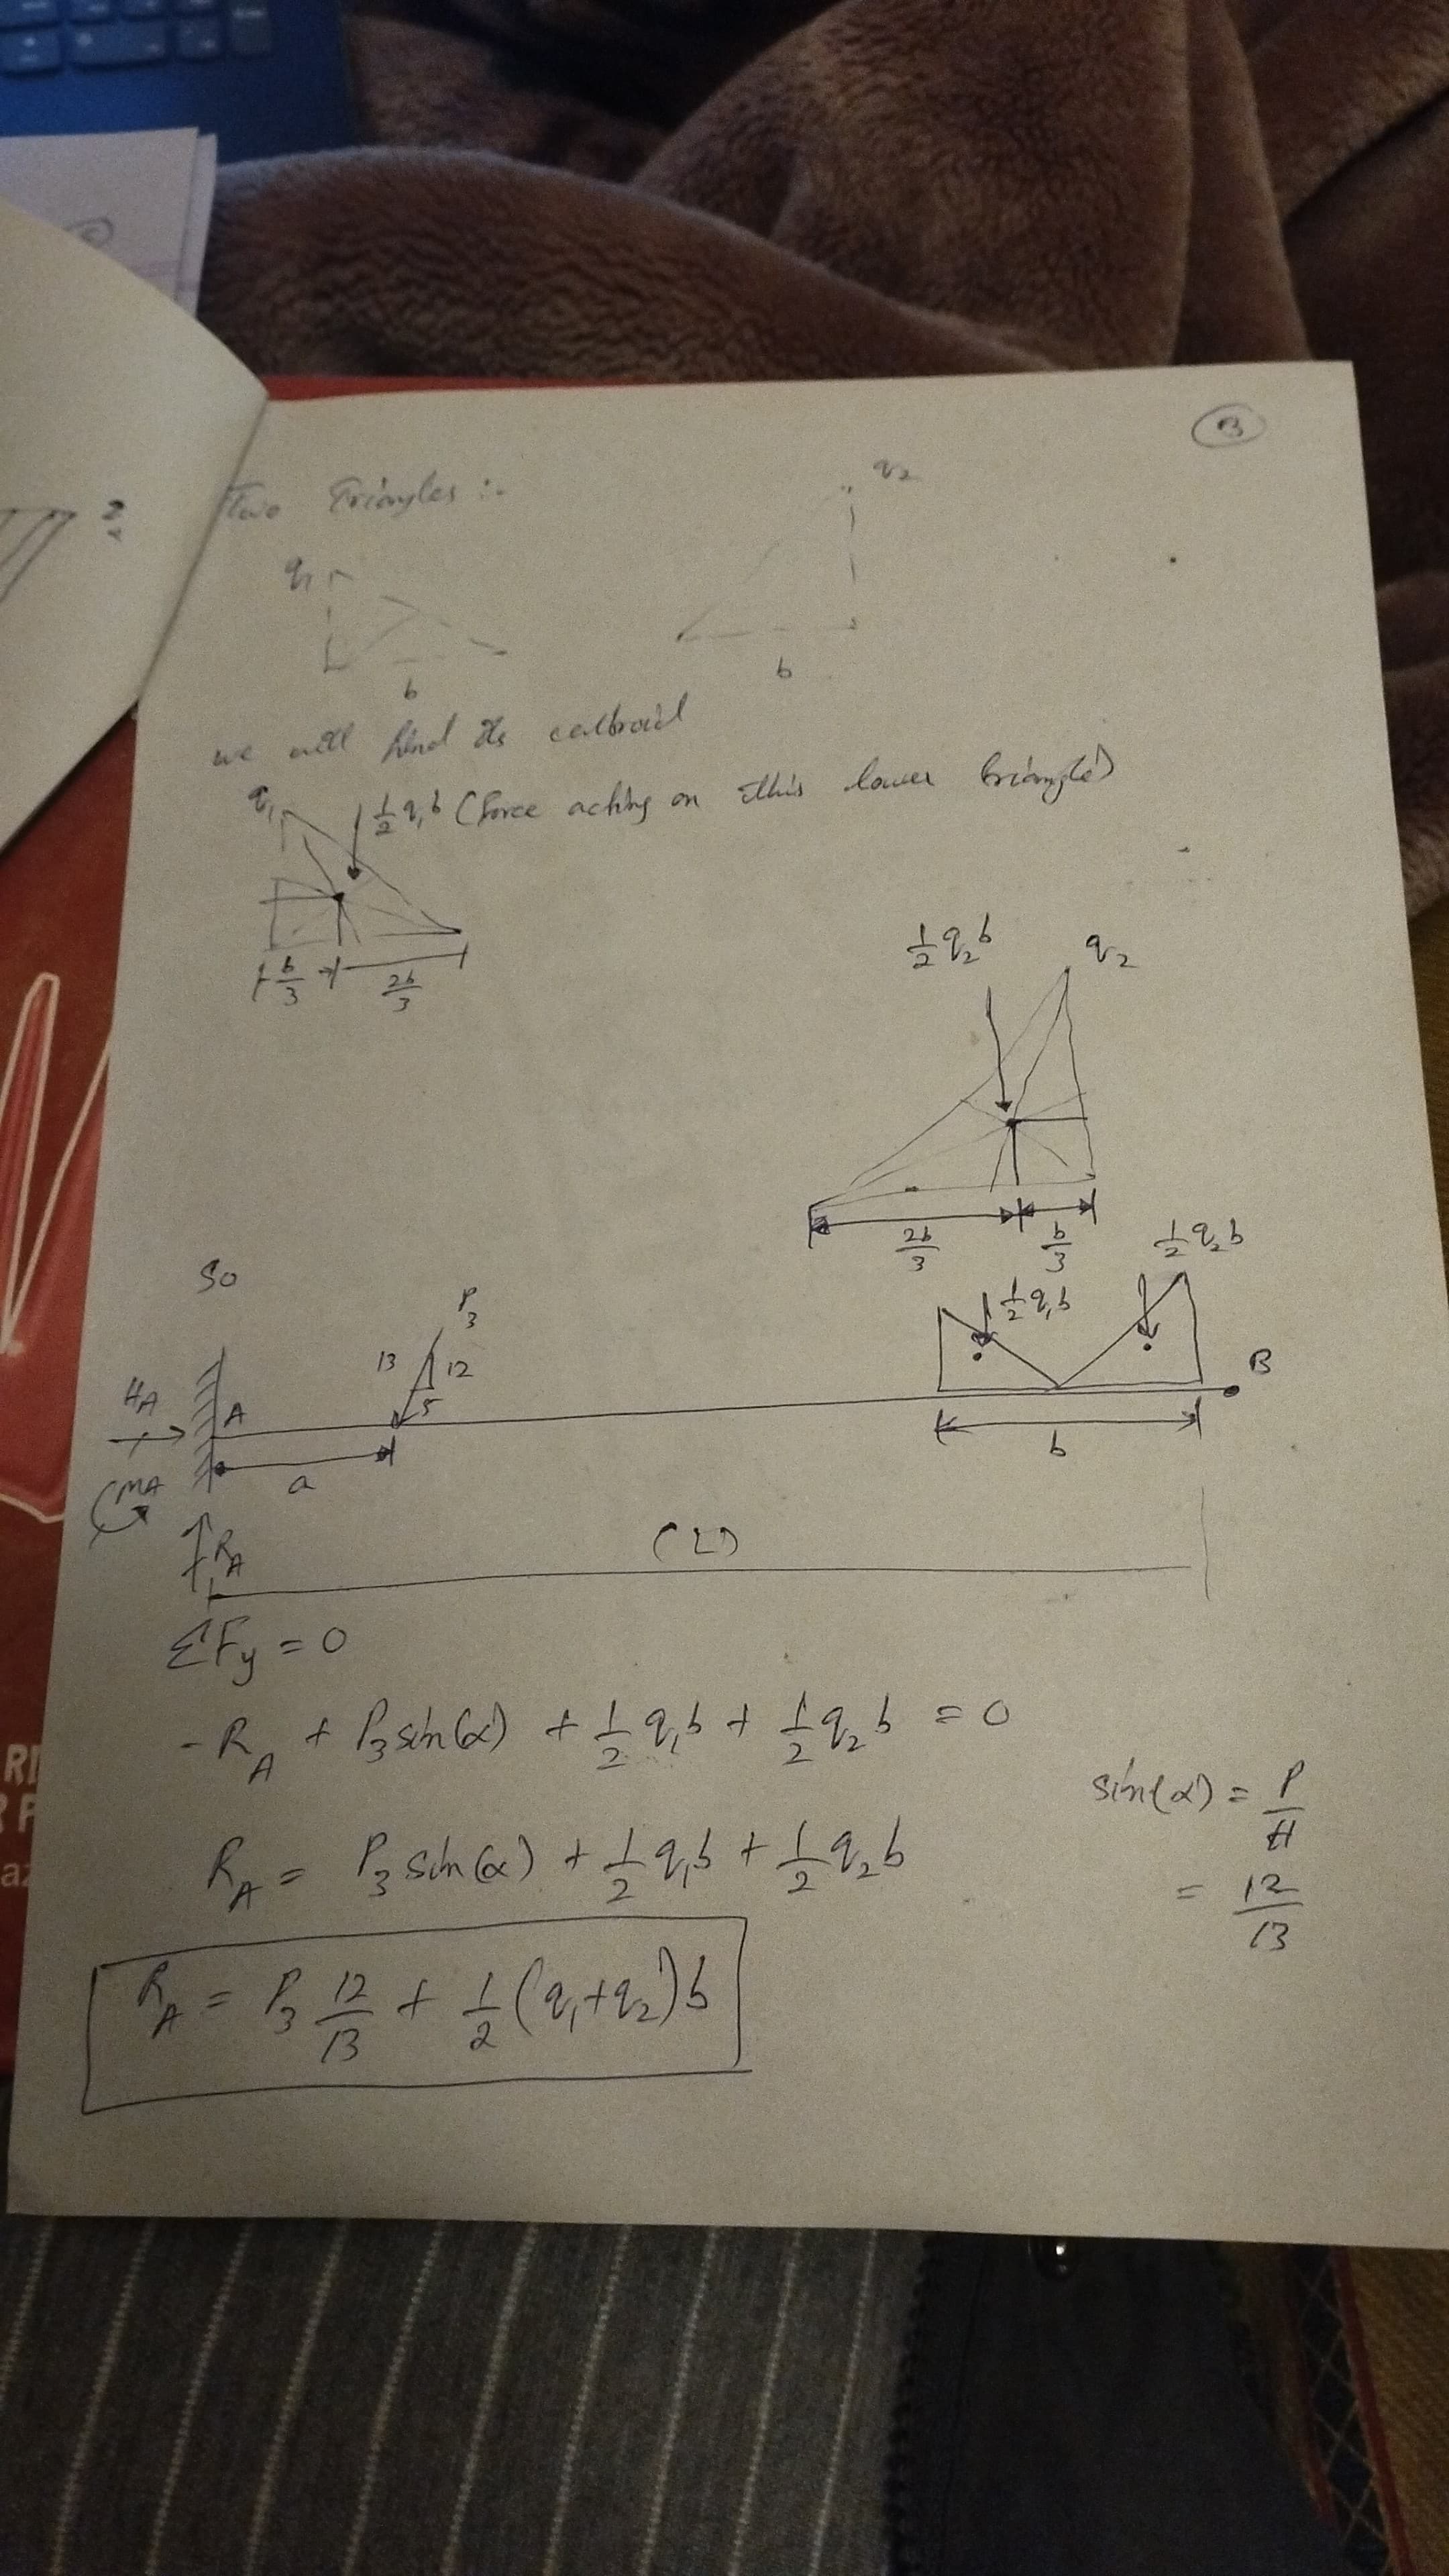 3
Two Triangles :-
q2
q1
b
b
we will find its
q1
1/2 q1b (Force acting on this lower triangle)
b/3
2b/3
1/2 q2b
q2
2b/3
b/3
So
P3
13
12
5
1/2 q1b
1/2 q2b
HA
A
B
MA
a
b
RA
(L)
ΣFy = 0
-RA + P3 sin(α) + 1/2 q1b + 1/2 q2b = 0
sin(α) = P/H
RA = P3 sin(α) + 1/2 q1b + 1/2 q2b
= 12/13
RA = P3 12/13 + 1/2 (q1+q2)b